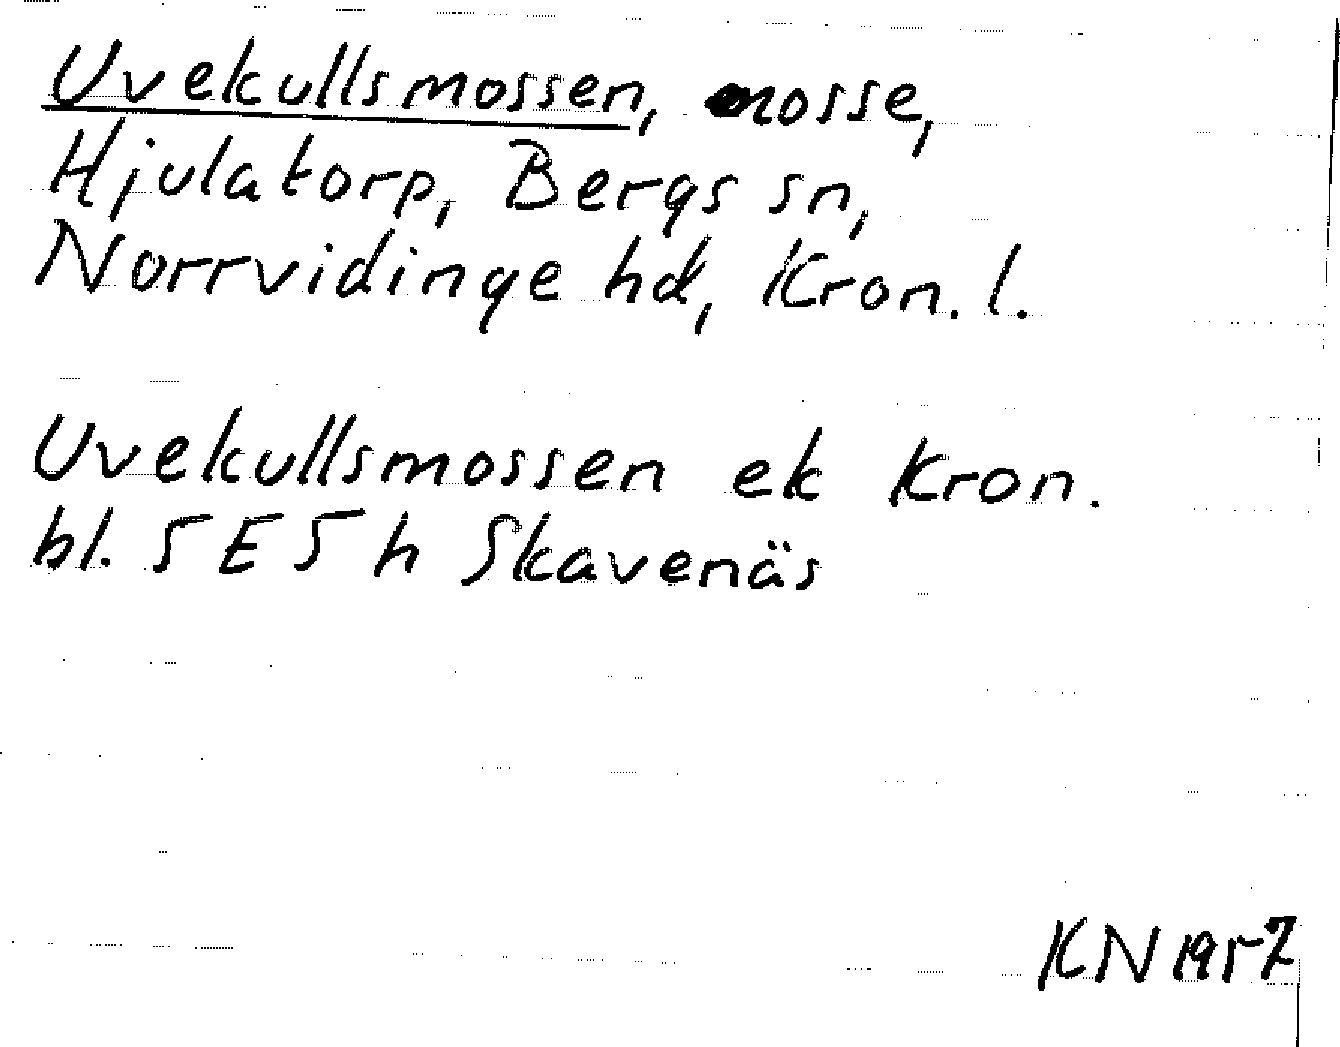 Uvekullsmossen, mosse,
Hjulatorp, Bergs sn,
Norrvidinge hd, Kron. l.
Uvekullsmossen ek Kron.
bl. 5 E 5 h Skavenäs
KN 1957